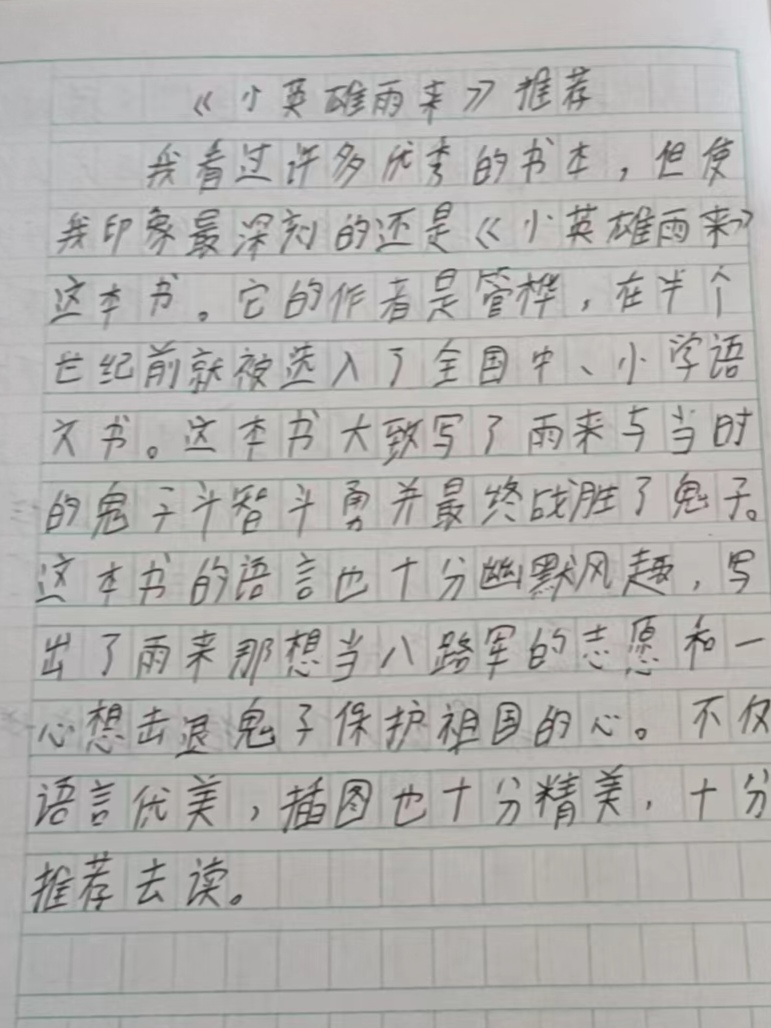 《小英雄雨来》推荐
我看过许多优秀的书本，但使
我印象最深刻的还是《小英雄雨来》
这本书。它的作者是管桦，在半个
世纪前就被选入了全国中、小学语
文书。这本书大致写了雨来与当时
的鬼子斗智斗勇并最终战胜了鬼子。
这本书的语言也十分幽默风趣，写
出了雨来那想当八路军的志愿和一
心想击退鬼子保护祖国的心。不仅
语言优美，插图也十分精美，十分
推荐去读。